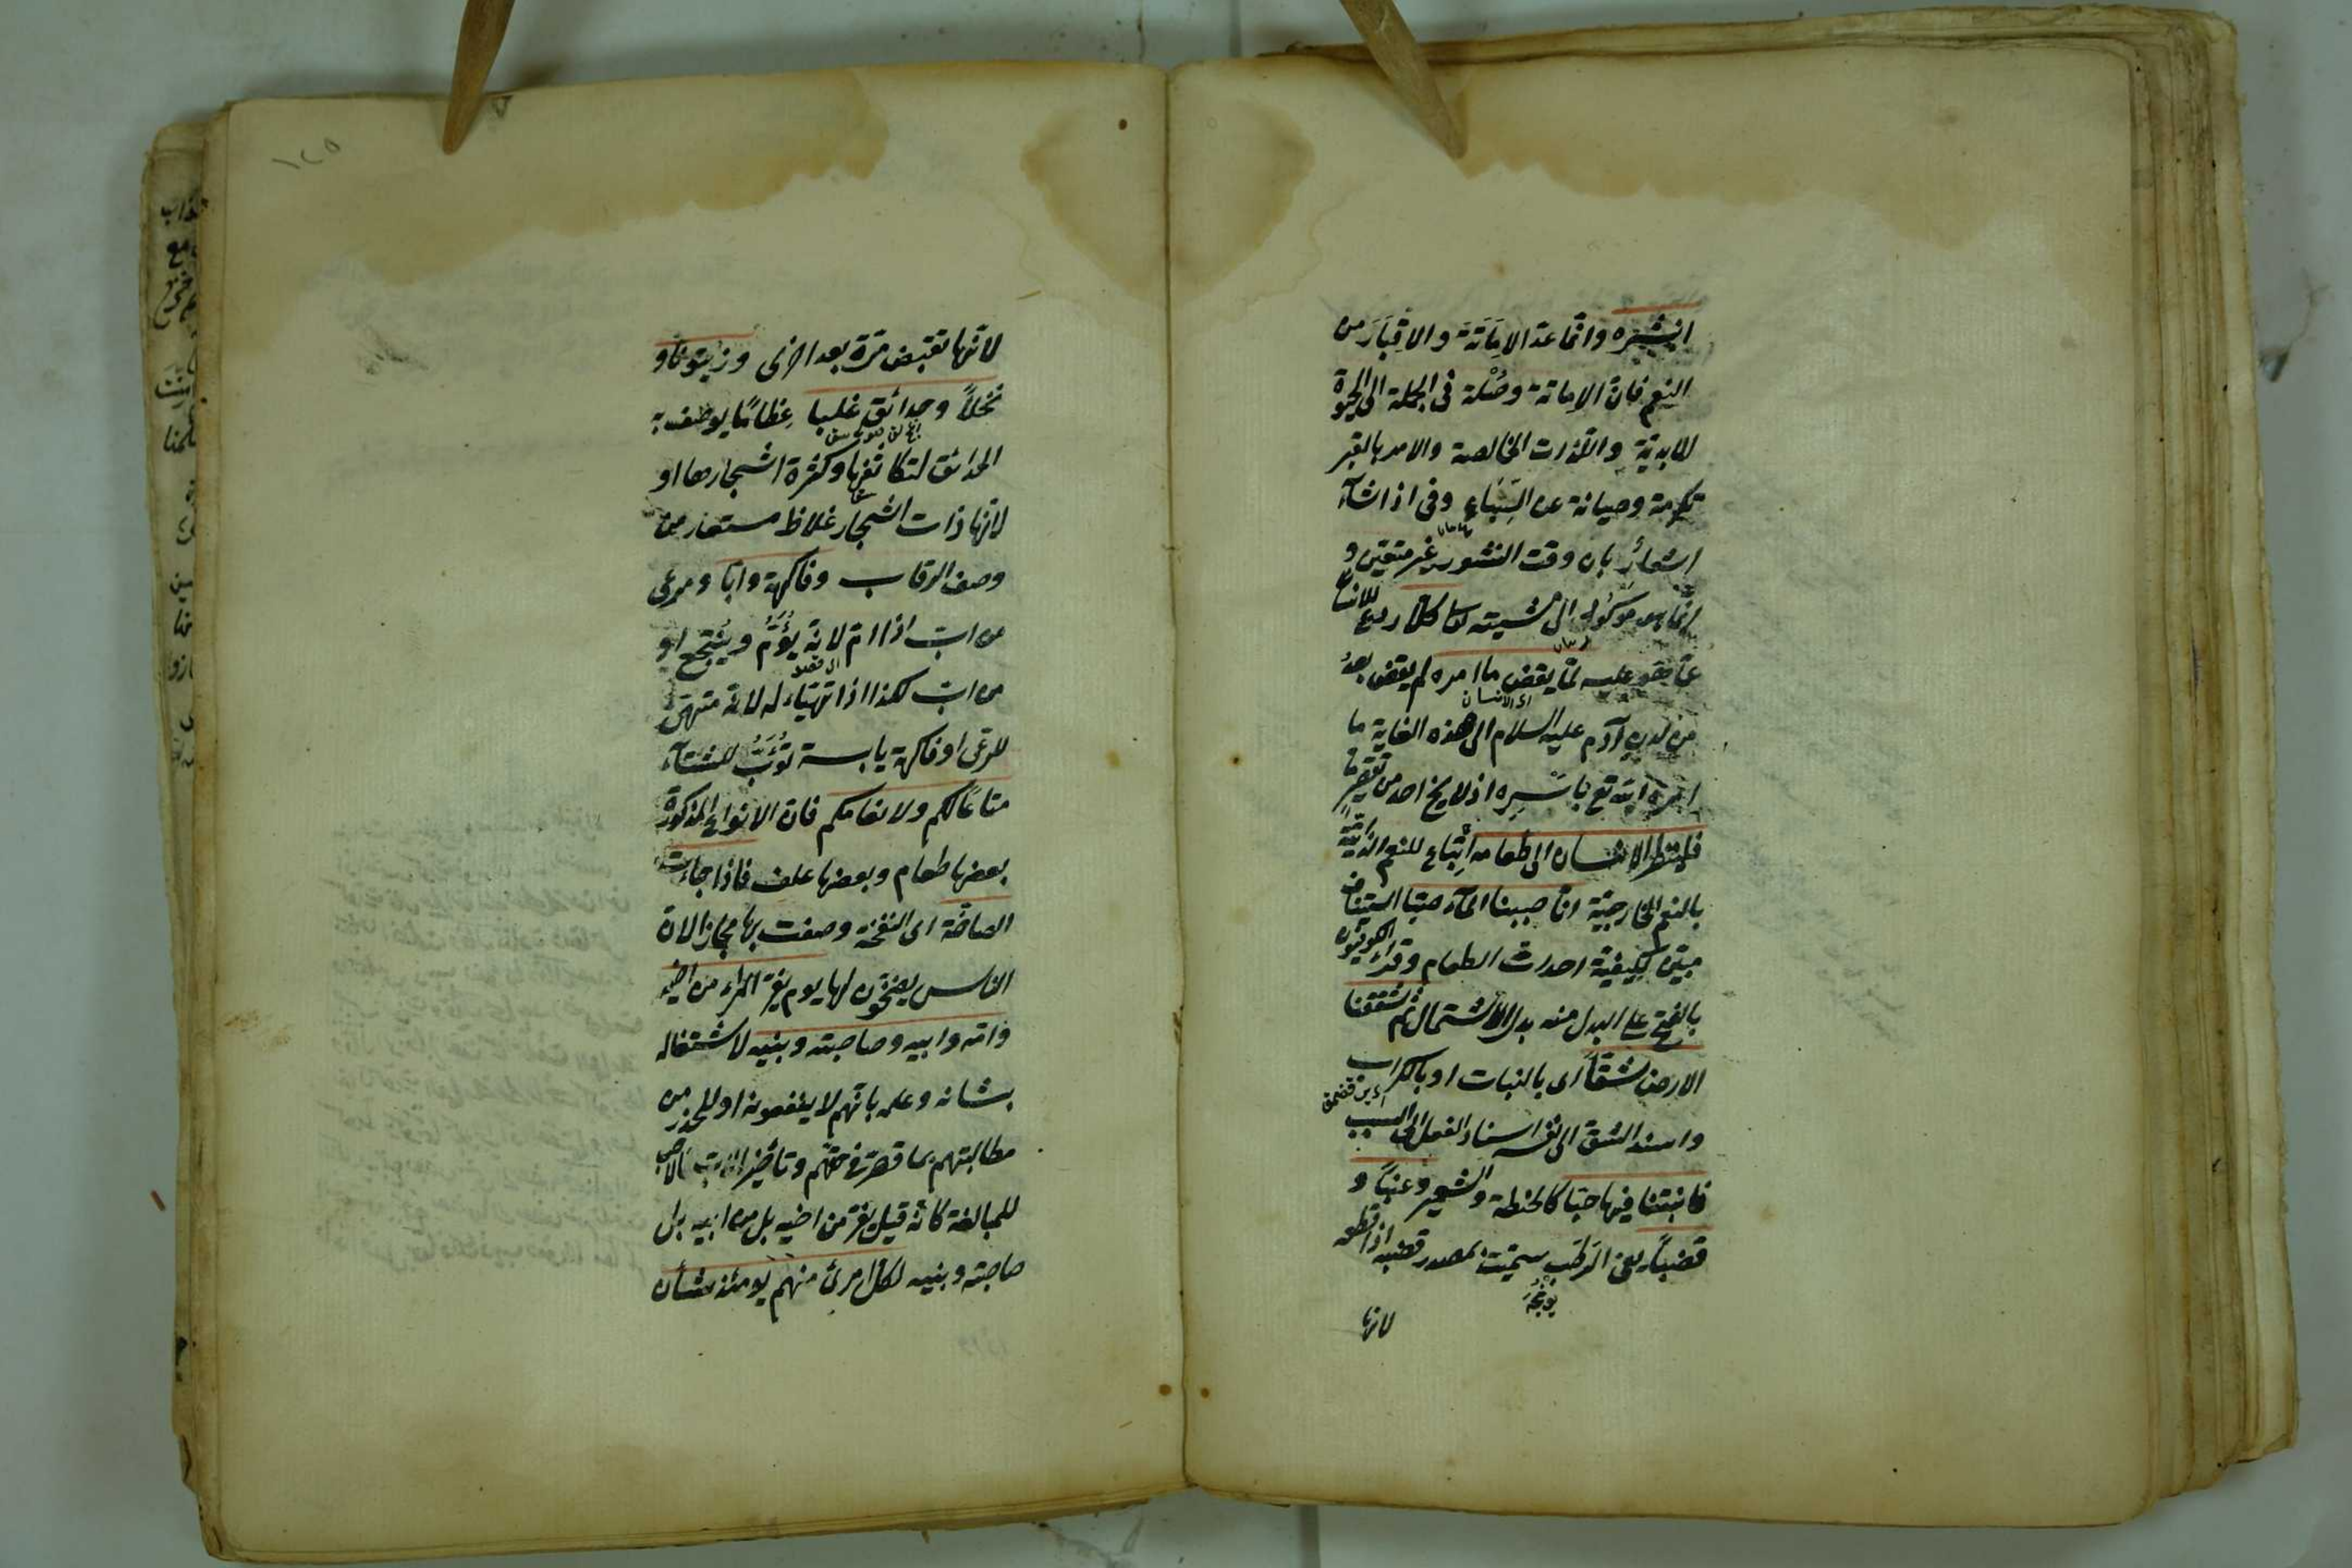 انشره وانما عد الاِمَاتَةَ والاِقبَارَ من
النعم فان الاماتة وصْلة فى الجملة الى الحيوة
الابدية واللذات الخالصة والامر بالقبر
تكرمة وصيانة عن السِّبَاع وفى اذا شآء
اشعارٌ بان وقت النشور غير متعين و
انما هو موكول الى مشيته تعا كلّا ردع للانسا
عمّا هو عليه لمّا يقض ما امره لم يقض بعدُ
اى الانسان
من لدن آدم عليه السلام الى هذه الغاية ما
امره الله تع باَسْرِه اذ لا يخ احد من تقصيرٍ مّا
فلينظر الانسان الى طعامه اِتباع للنعم الذاتية
بالنعم الخارجية انا صببنا المآء صبّا استيناف
مبيّن لكيفية احداث الطعام وقراء الكوفيون
بالفتح على البدل منه بدل الاشتمال ثم شققنا
الارض شقّاً اى بالنبات او بالكراب
واسند الشق الى نفسه اسناد الفعل الى السبب
فانبتنا فيها حبّا كالحنطة والشعير وعنباً و
قضباً يعنى الرَطبَ سميت بمصدر قضبه اذا قطعه
يونجه
لانها
١٢٥
لانّها تقتضب مرّة بعد اخرى وزيتونا و
نخلاً وحدائق غلبا عِظامًا يوصف به
الحدائق لتكاثفها وكثرة اشجارها او
لانها ذات اشجار غلاظ مستعار من
وصف الرقاب وفاكهة وابّا ومرعى
من ابّ اذا امّ لانه يُؤَمُّ ويُنتجع او
من ابّ لكذا اذا تهيّاء له لانه متهيّ
للرعى او فاكهة يابسة تُؤَبُّ للشتآء
متاعًا لكم ولانعامكم فان الانواع المذكورة
بعضها طعام وبعضها علف فاذا جاءت
الصاخّة اى النفخة وصفت بها مجازا لان
الناس يصخّون لها يوم يفرّ المراء من اخيه
وامه وابيه وصاحبته وبنيه لاشتغاله
بشانه وعلمه بانهم لا ينفعونه او للحذر من
مطالبتهم بما قصر فى حقهم وتأخير الاحب فالاحب
للمبالغة كانّه قيل يفرّ من اخيه بل من ابيه بل
صاحبته وبنيه لكل امرئ منهم يومئذ شأن